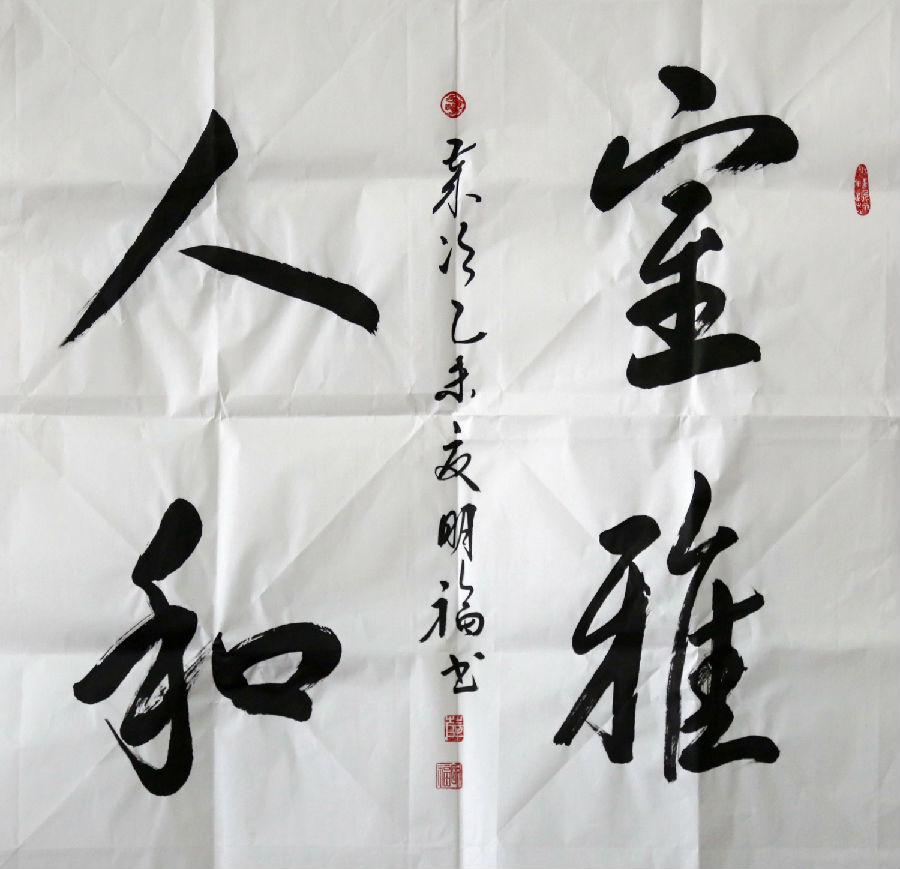 室雅
人和
歲次乙未夏明福书